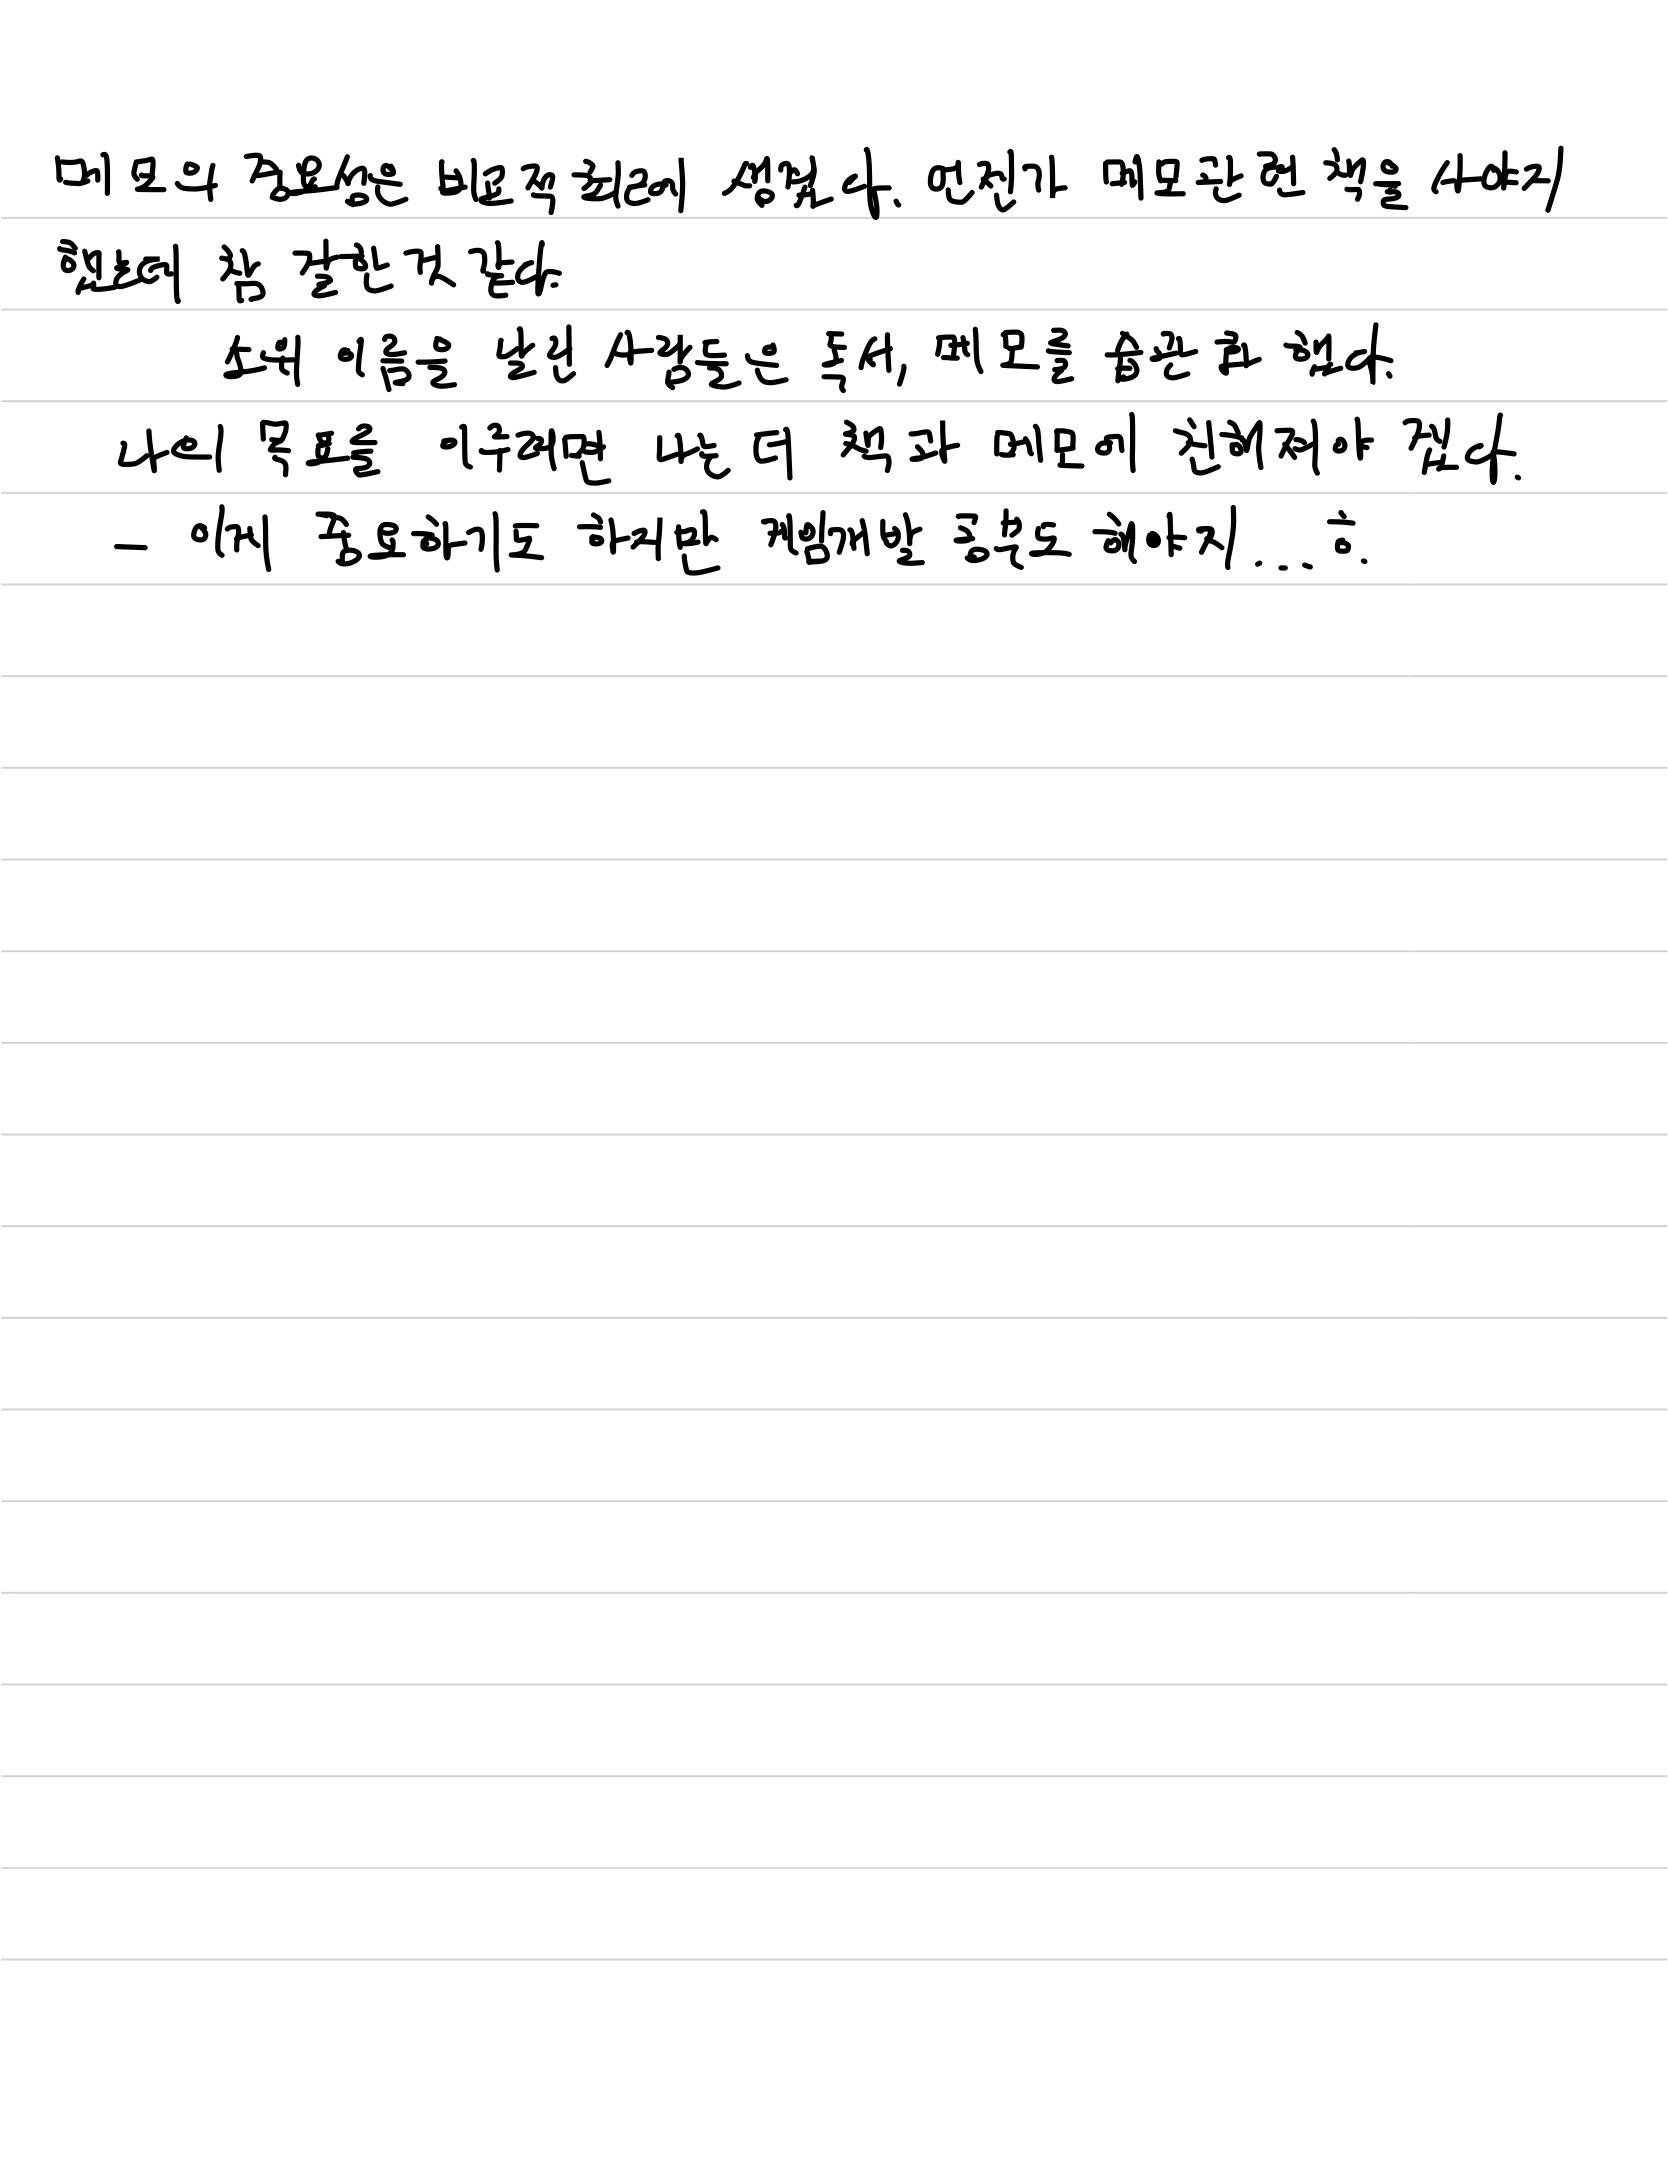 메모의 중요성은 비교적 최근에 생겼다. 언젠가 메모관련 책을 사야지
했는데 참 잘한것 같다.
소위 이름을 날린 사람들은 독서, 메모를 습관화 했다.
나의 목표를 이루려면 나는 더 책과 메모에 친해져야 겠다.
- 이게 중요하기도 하지만 게임개발 공부도 해야지... ㅎ.